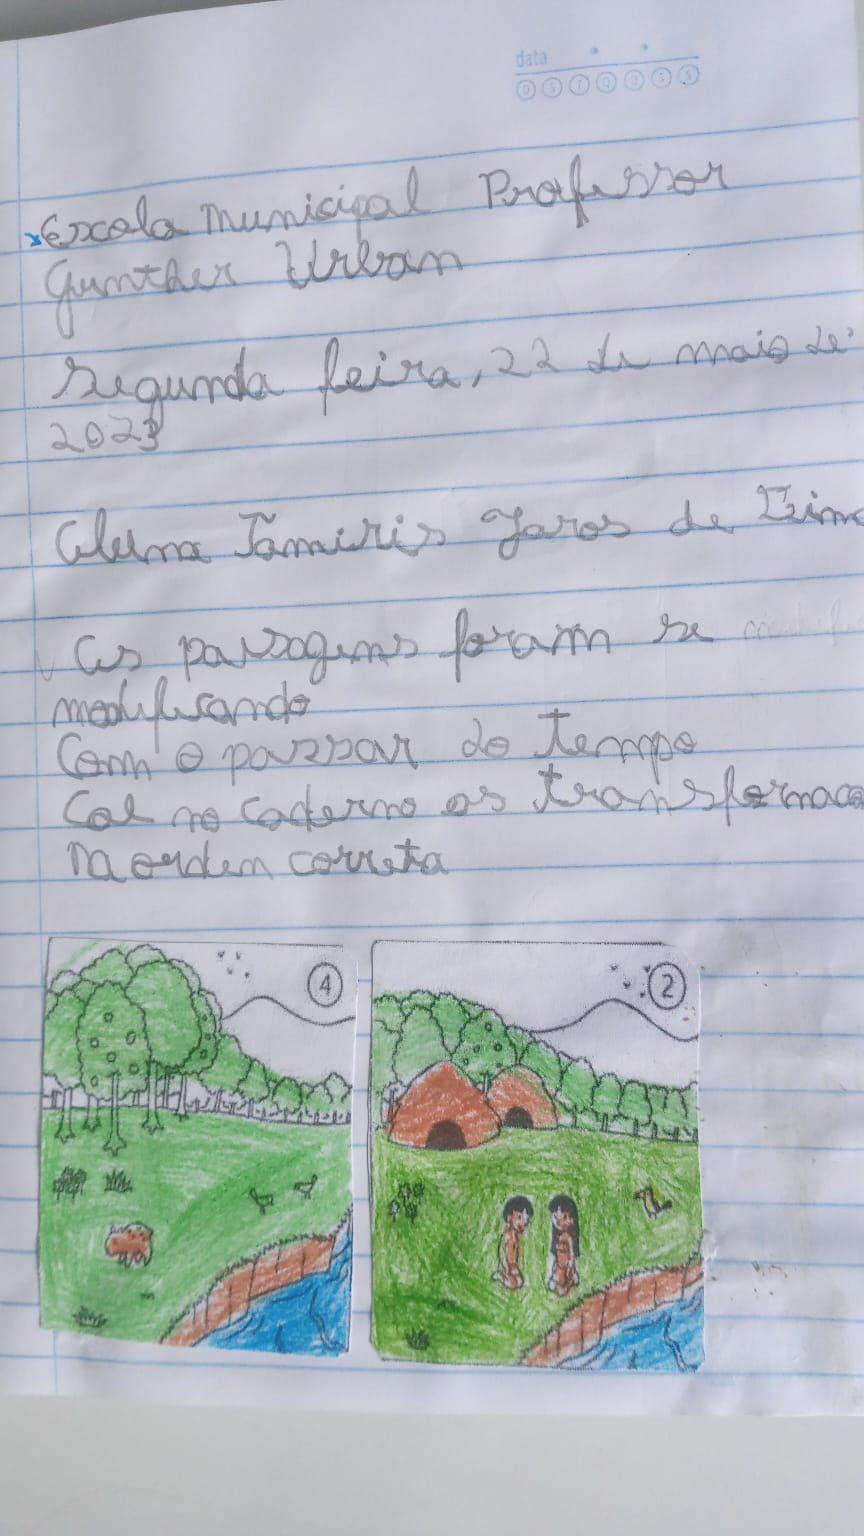 data
D S T Q Q S S
Escola municipal Professor
Gunther Urban
Segunda feira, 22 de maio de
2023
Aluna Tamiris Jaros de
As paisagens foram se
modificando
Com o passar do tempo
Cole no caderno as transformaçõe
na ordem correta
4
2